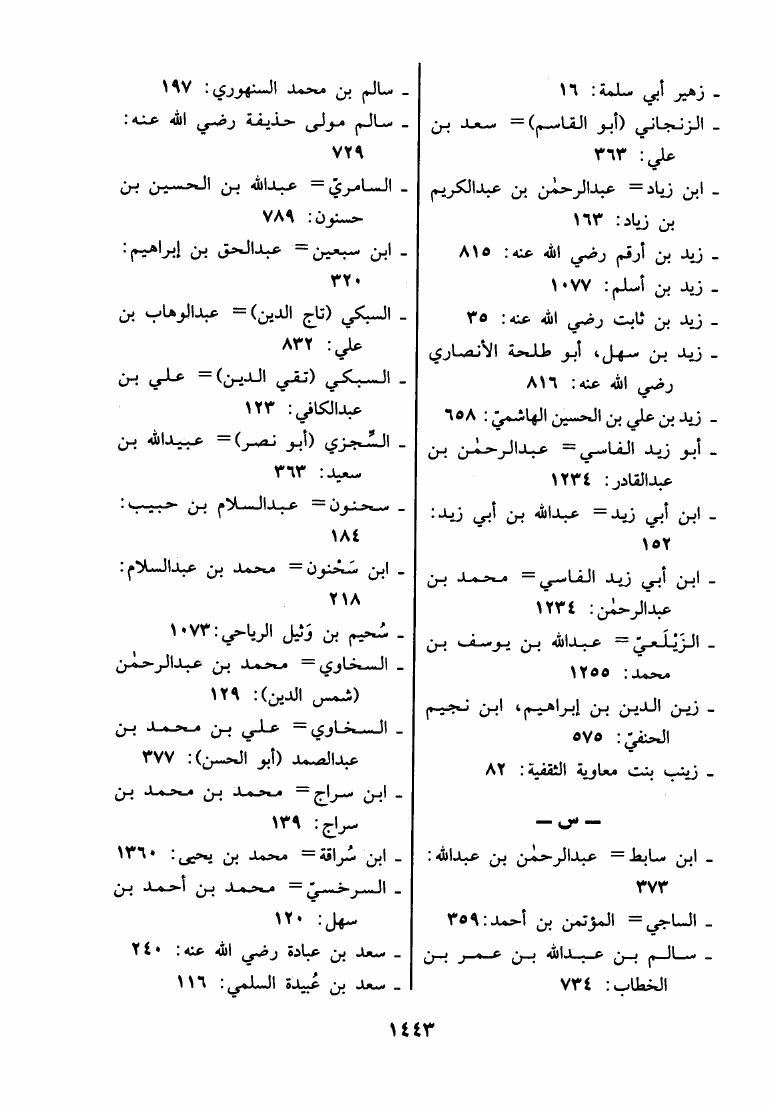 - زهير أبي سلمة: ١٦
- الزنجاني (أبو القاسم)= سعد بن
علي: ٣٦٣
- ابن زياد= عبدالرحمٰن بن عبدالكريم
بن زياد: ١٦٣
- زيد بن أرقم رضي الله عنه: ٨١٥
- زيد بن أسلم: ١٠٧٧
- زيد بن ثابت رضي الله عنه: ٣٥
- زيد بن سهل، أبو طلحة الأنصاري
رضي الله عنه: ٨١٦
- زيد بن علي بن الحسين الهاشميّ: ٦٥٨
- أبو زيد الفاسي= عبدالرحمٰن بن
عبدالقادر: ١٢٣٤
- ابن أبي زيد= عبدالله بن أبي زيد:
١٥٢
- ابن أبي زيد الفاسي= محمد بن
عبدالرحمٰن: ١٢٣٤
- الزَيْلَعيّ= عبدالله بن يوسف بن
محمد: ١٢٥٥
- زين الدين بن إبراهيم، ابن نجيم
الحنفيّ: ٥٧٥
- زينب بنت معاوية الثقفية: ٨٢
- س -
- ابن سابط= عبدالرحمٰن بن عبدالله:
٣٧٣
- الساجي= المؤتمن بن أحمد: ٣٥٩
- سالم بن عبدالله بن عمر بن
الخطاب: ٧٣٤
- سالم بن محمد السنهوري: ١٩٧
- سالم مولى حذيفة رضي الله عنه:
٧٢٩
- السامريّ= عبدالله بن الحسين بن
حسنون: ٧٨٩
- ابن سبعين= عبدالحق بن إبراهيم:
٣٢٠
- السبكي (تاج الدين)= عبدالوهاب بن
علي: ٨٣٢
- السبكي (تقي الدين)= علي بن
عبدالكافي: ١٢٣
- السِّجزي (أبو نصر)= عبيدالله بن
سعيد: ٣٦٣
- سحنون= عبدالسلام بن حبيب:
١٨٤
- ابن سَحْنون= محمد بن عبدالسلام:
٢١٨
- سُحيم بن وَثيل الرياحي: ١٠٧٣
- السخاوي= محمد بن عبدالرحمٰن
(شمس الدين): ١٢٩
- السخاوي= علي بن محمد بن
عبدالصمد (أبو الحسن): ٣٧٧
- ابن سراج= محمد بن محمد بن
سراج: ١٣٩
- ابن سُراقة= محمد بن يحيى: ١٣٦٠
- السرخسيّ= محمد بن أحمد بن
سهل: ١٢٠
- سعد بن عبادة رضي الله عنه: ٢٤٠
- سعد بن عُبيدة السلمي: ١١٦
١٤٤٣